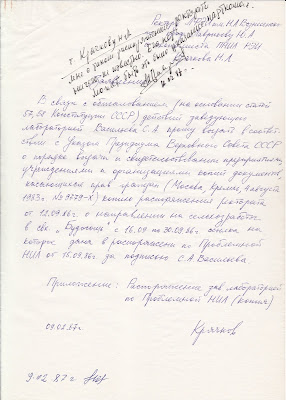 Ректору
т. Крючкову Н.А.
мне о таком распоряжении
ничего не известно.
може быть
Заявление
В связи с обжалованием (на основании статей
57, 58 Конституции СССР) действий заведующего
лабораторией Васильева С.А. прошу выдать в соответ-
ствии с Указом Президиума Верховного Совета СССР
о порядке выдачи и свидетельствования предприятиями,
учреждениями и организациями копий документов,
касающихся прав граждан (Москва, Кремль, 4 августа
1983г. №9779-X) копию распоряжения ректората
от 12.09.86г. о направлении на сельхозработы
в свх. "Будогощь" с 16.09 по 30.09.86г ссылка на
которое дана в распоряжении по Проблемной
НИЛ от 16.09.86г за подписью С.А. Васильева.
Приложение: Распоряжение зав. лабораторией
по Проблемной НИЛ (копия)
09.02.87г.
Крючков
9.02.87г